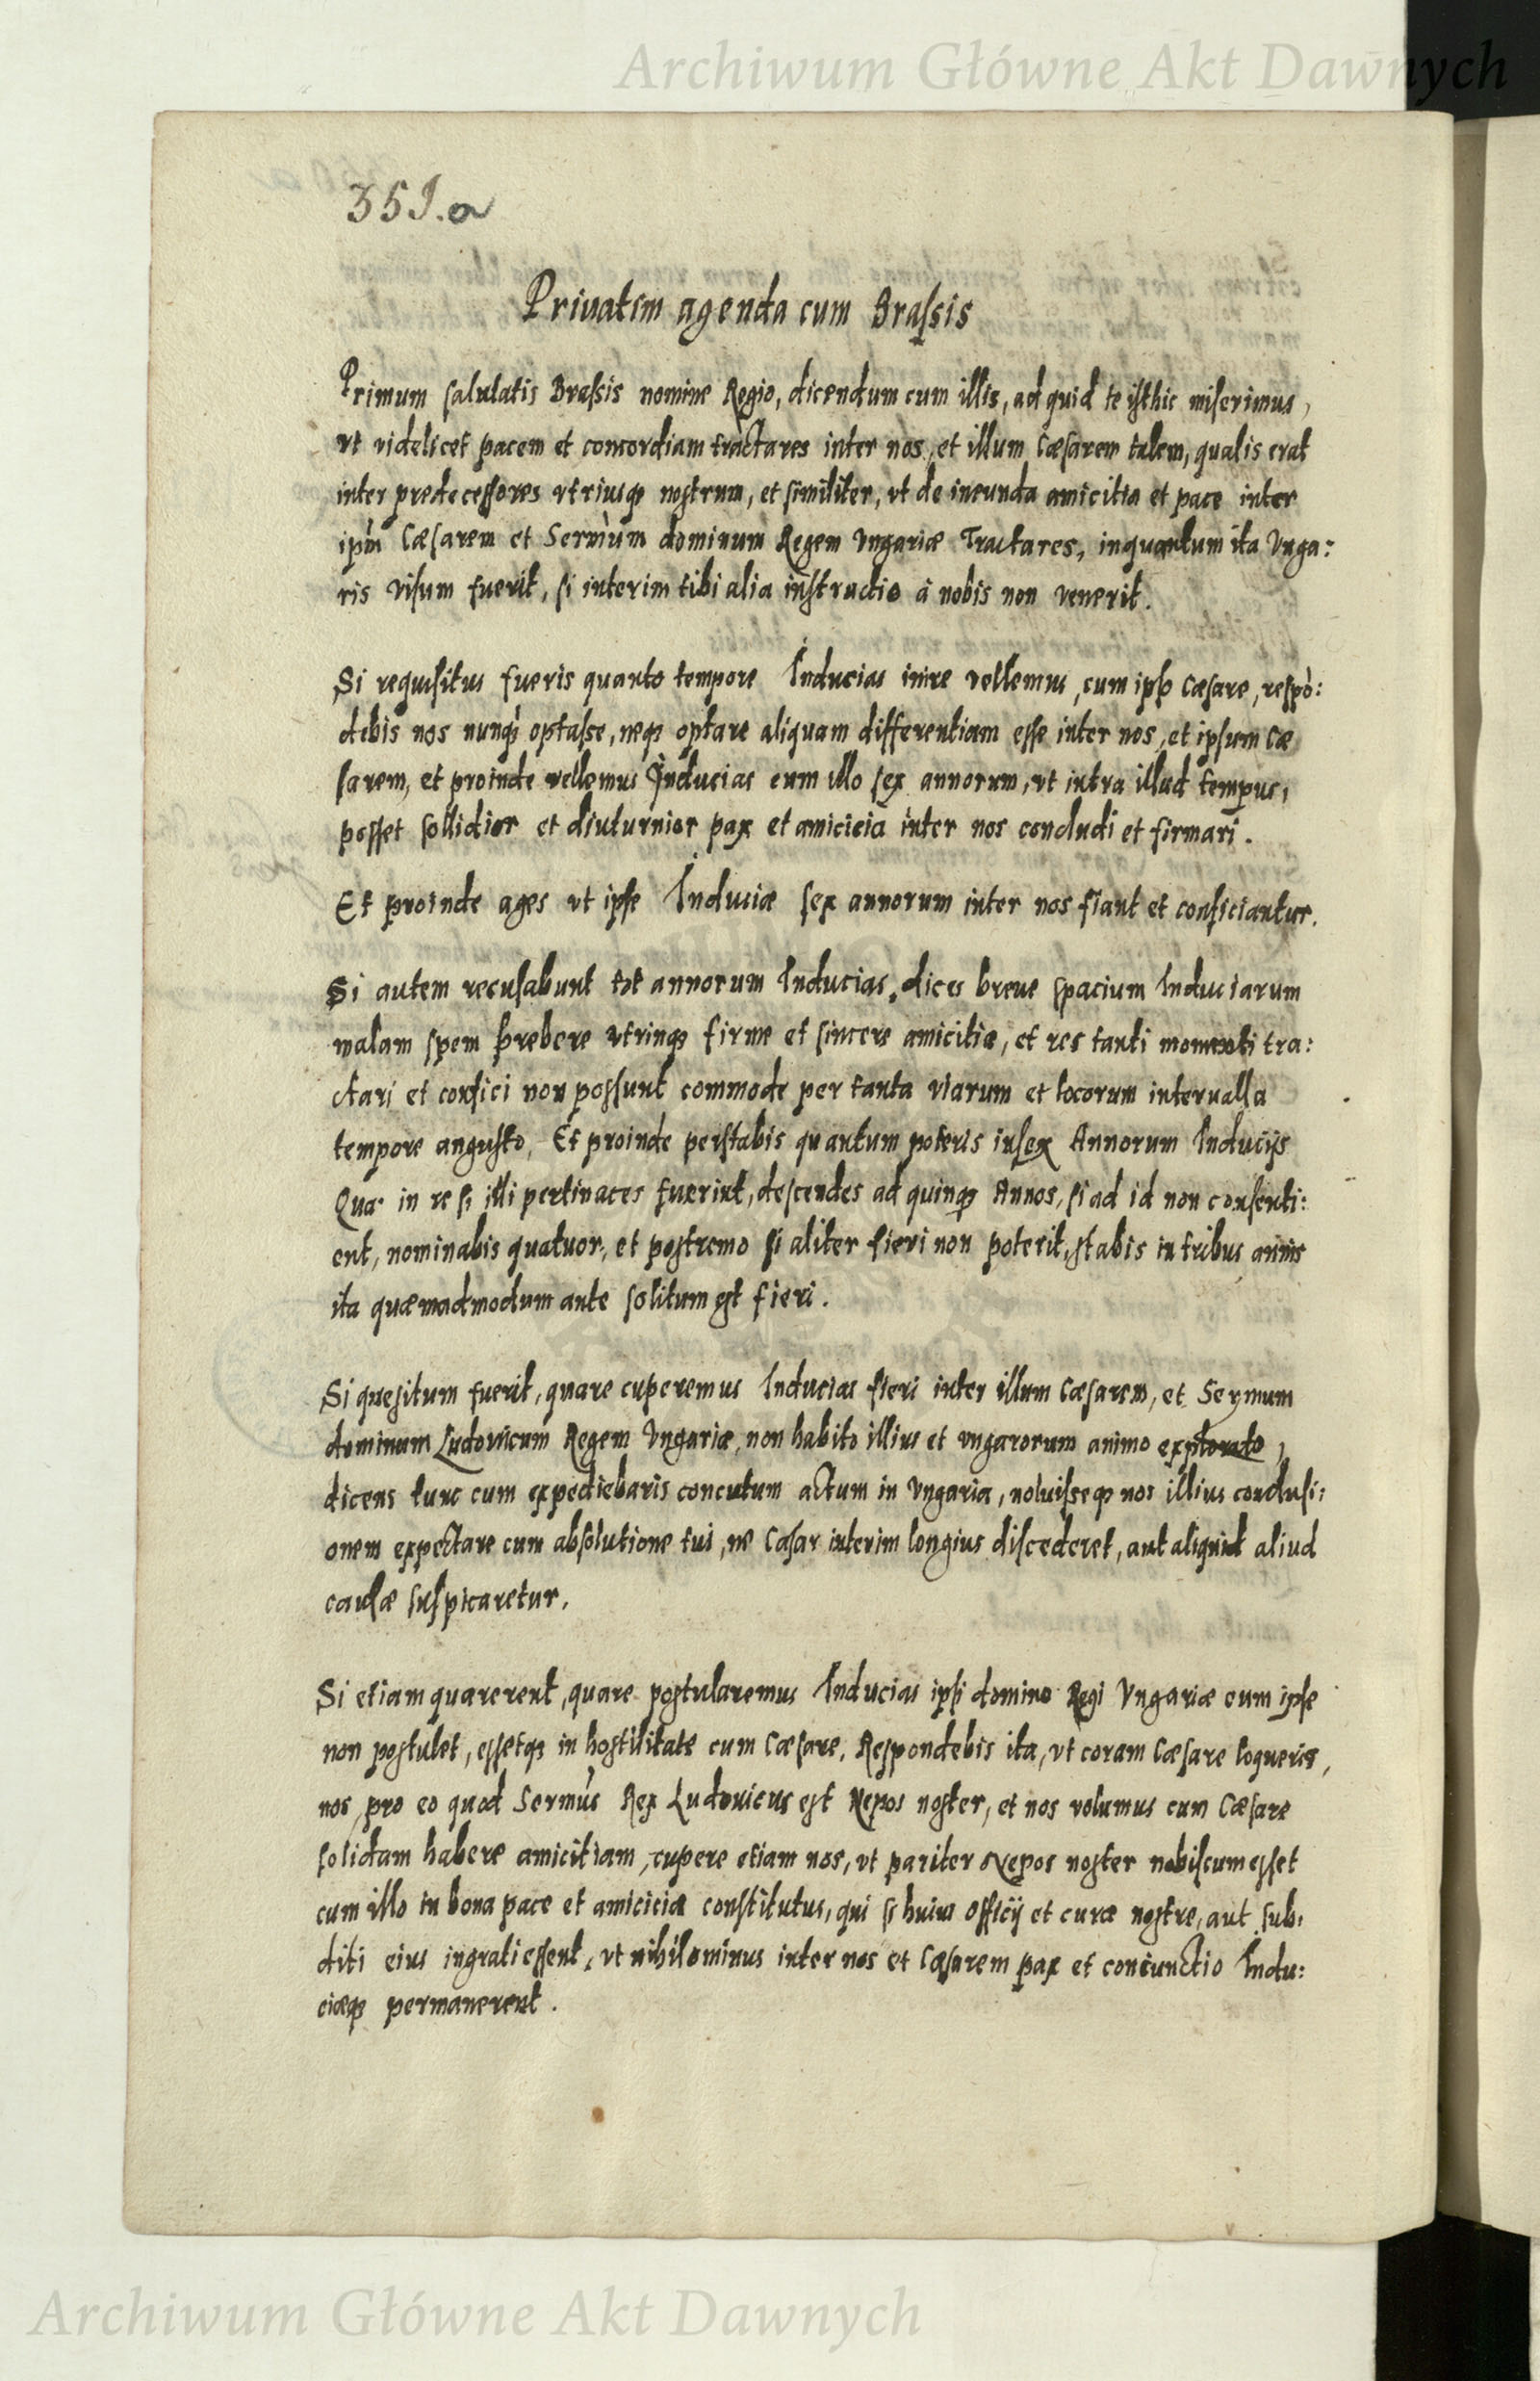 Archiwum Główne Akt Dawnych
359.a
Priuatim agenda cum Brassis
Primum salutatis Brassis nomine Regio, dicendum cum illis, ad quid te isthic miserimus,
vt videlicet pacem et concordiam tractares inter nos, et illum Cæsarem talem, qualis erat
inter predecessores vtriusq; nostrum, et similiter, vt de ineunda amicitia et pace inter
ipm̀ Cæsarem et Sermùm dominum Regem Vngariæ Tractares, inquantum ita Vnga:
ris visum fuerit, si interim tibi alia instructio à nobis non venerit.
Si requisitus fueris quanto tempore Inducias inire vellemus, cum ipso Cæsare, respò:
debis nos nunq; optasse, neq; optare aliquam differentiam esse inter nos, et ipsum Cæ
sarem, et proinde vellemus Inducias cum illo sex annorum, vt intra illud tempus,
posset sollidior et diuturnior pax et amicicia inter nos concludi et firmari.
Et proinde ages vt ipse Induciæ sex annorum inter nos fiant et conficiantur.
Si autem recusabunt tot annorum Inducias, dices breue spacium Induciarum
malam spem prebere vtrinq; firme et sincere amicitiæ, et res tanti momenti tra:
ctari et confici non possunt commode per tanta viarum et locorum interualla
tempore angusto, Et proinde perstabis quantum poteris in sex Annorum Inducijs
Qua in re si illi pertinaces fuerint, descendes ad quinq; Annos, si ad id non consenti:
ent, nominabis quatuor, et postremo si aliter fieri non poterit, stabis in tribus annis
ita quæmadmodum ante solitum est fieri.
Si quesitum fuerit, quare cuperemus Inducias fieri inter illum Cæsarem, et Sermum
dominum Ludouicum Regem Vngariæ, non habito illius et vngarorum animo explorato,
dicens tunc cum expediebaris concutum actum in Vngaria, noluisseq; nos illius conclusi:
onem expectare cum absolutione tui, ne Cæsar interim longius discederet, aut aliquid aliud
causæ suspicaretur.
Si etiam quærerent, quare postularemus Inducias ipsi domino Regi Vngariæ cum ipse
non postulet, essetq; in hostilitate cum Cæsare, Respondebis ita, vt coram Cæsare loqueris,
nos pro eo quod Sermùs Rex Ludouicus est Nepos noster, et nos volumus cum Cæsare
solidam habere amicitiam, cupere etiam nos, vt pariter Nepos noster nobiscum esset
cum illo in bona pace et amicicia constitutus, qui si huius officij et curæ nostre, aut sub:
diti eius ingrati essent, vt nihilominus inter nos et Cæsarem pax et coniunctio Indu:
ciæq; permanerent.
Archiwum Główne Akt Dawnych